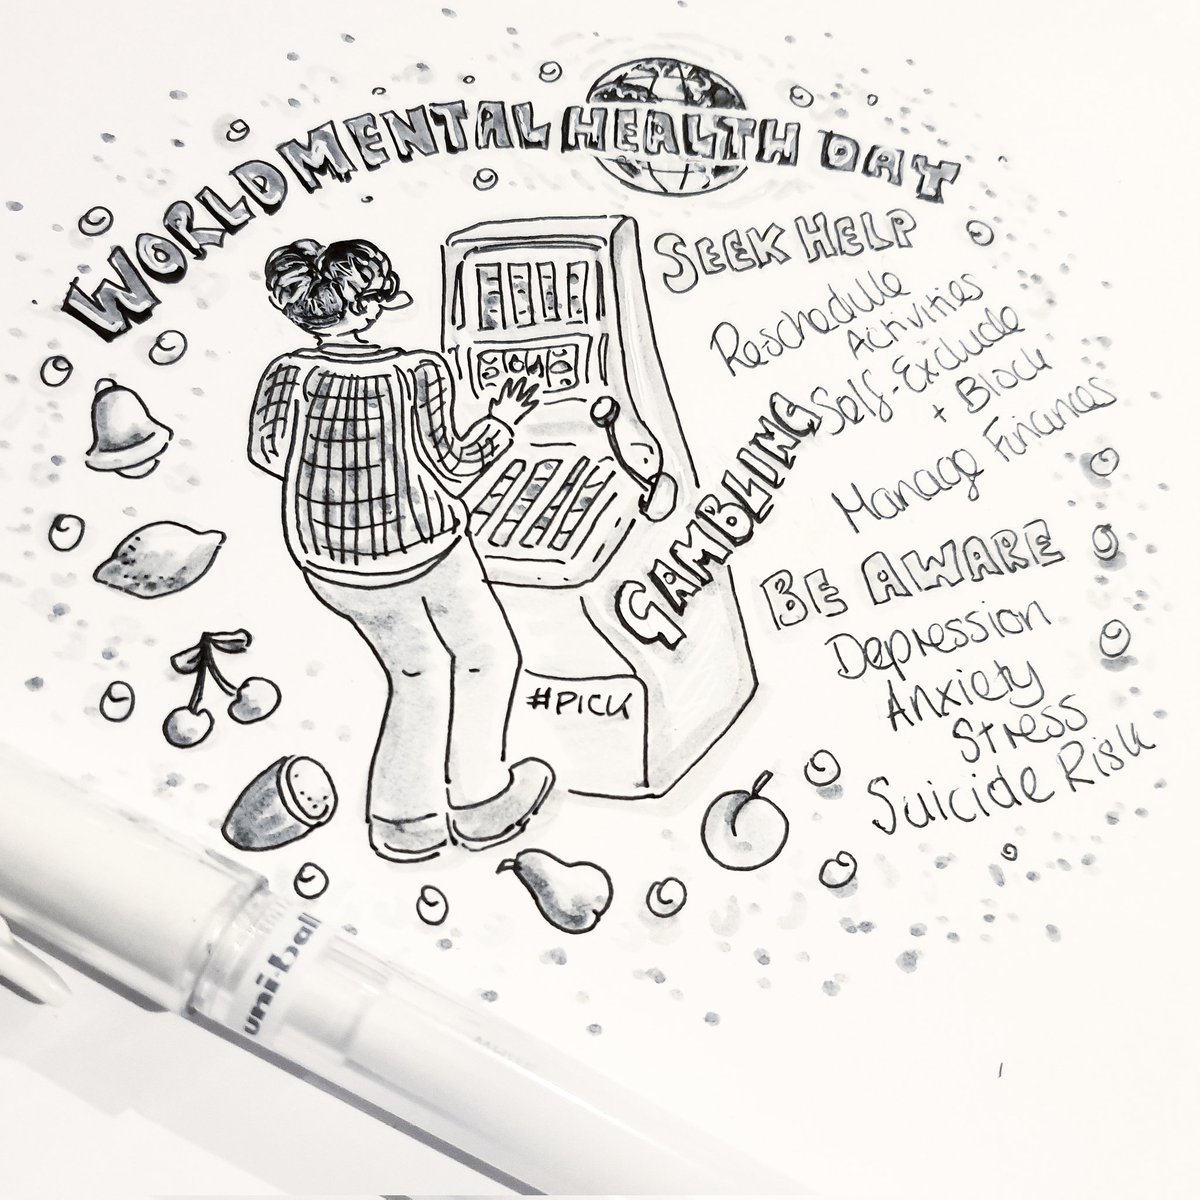 WORLD MENTAL HEALTH DAY
SEEK HELP
Reschedulle
Activities
Self-Exclude
+ Block
Manage Finances
GAMBLING
BE AWARE
Depression
Anxiety
Stress
Suicide Risk
#PICK
uni-ball